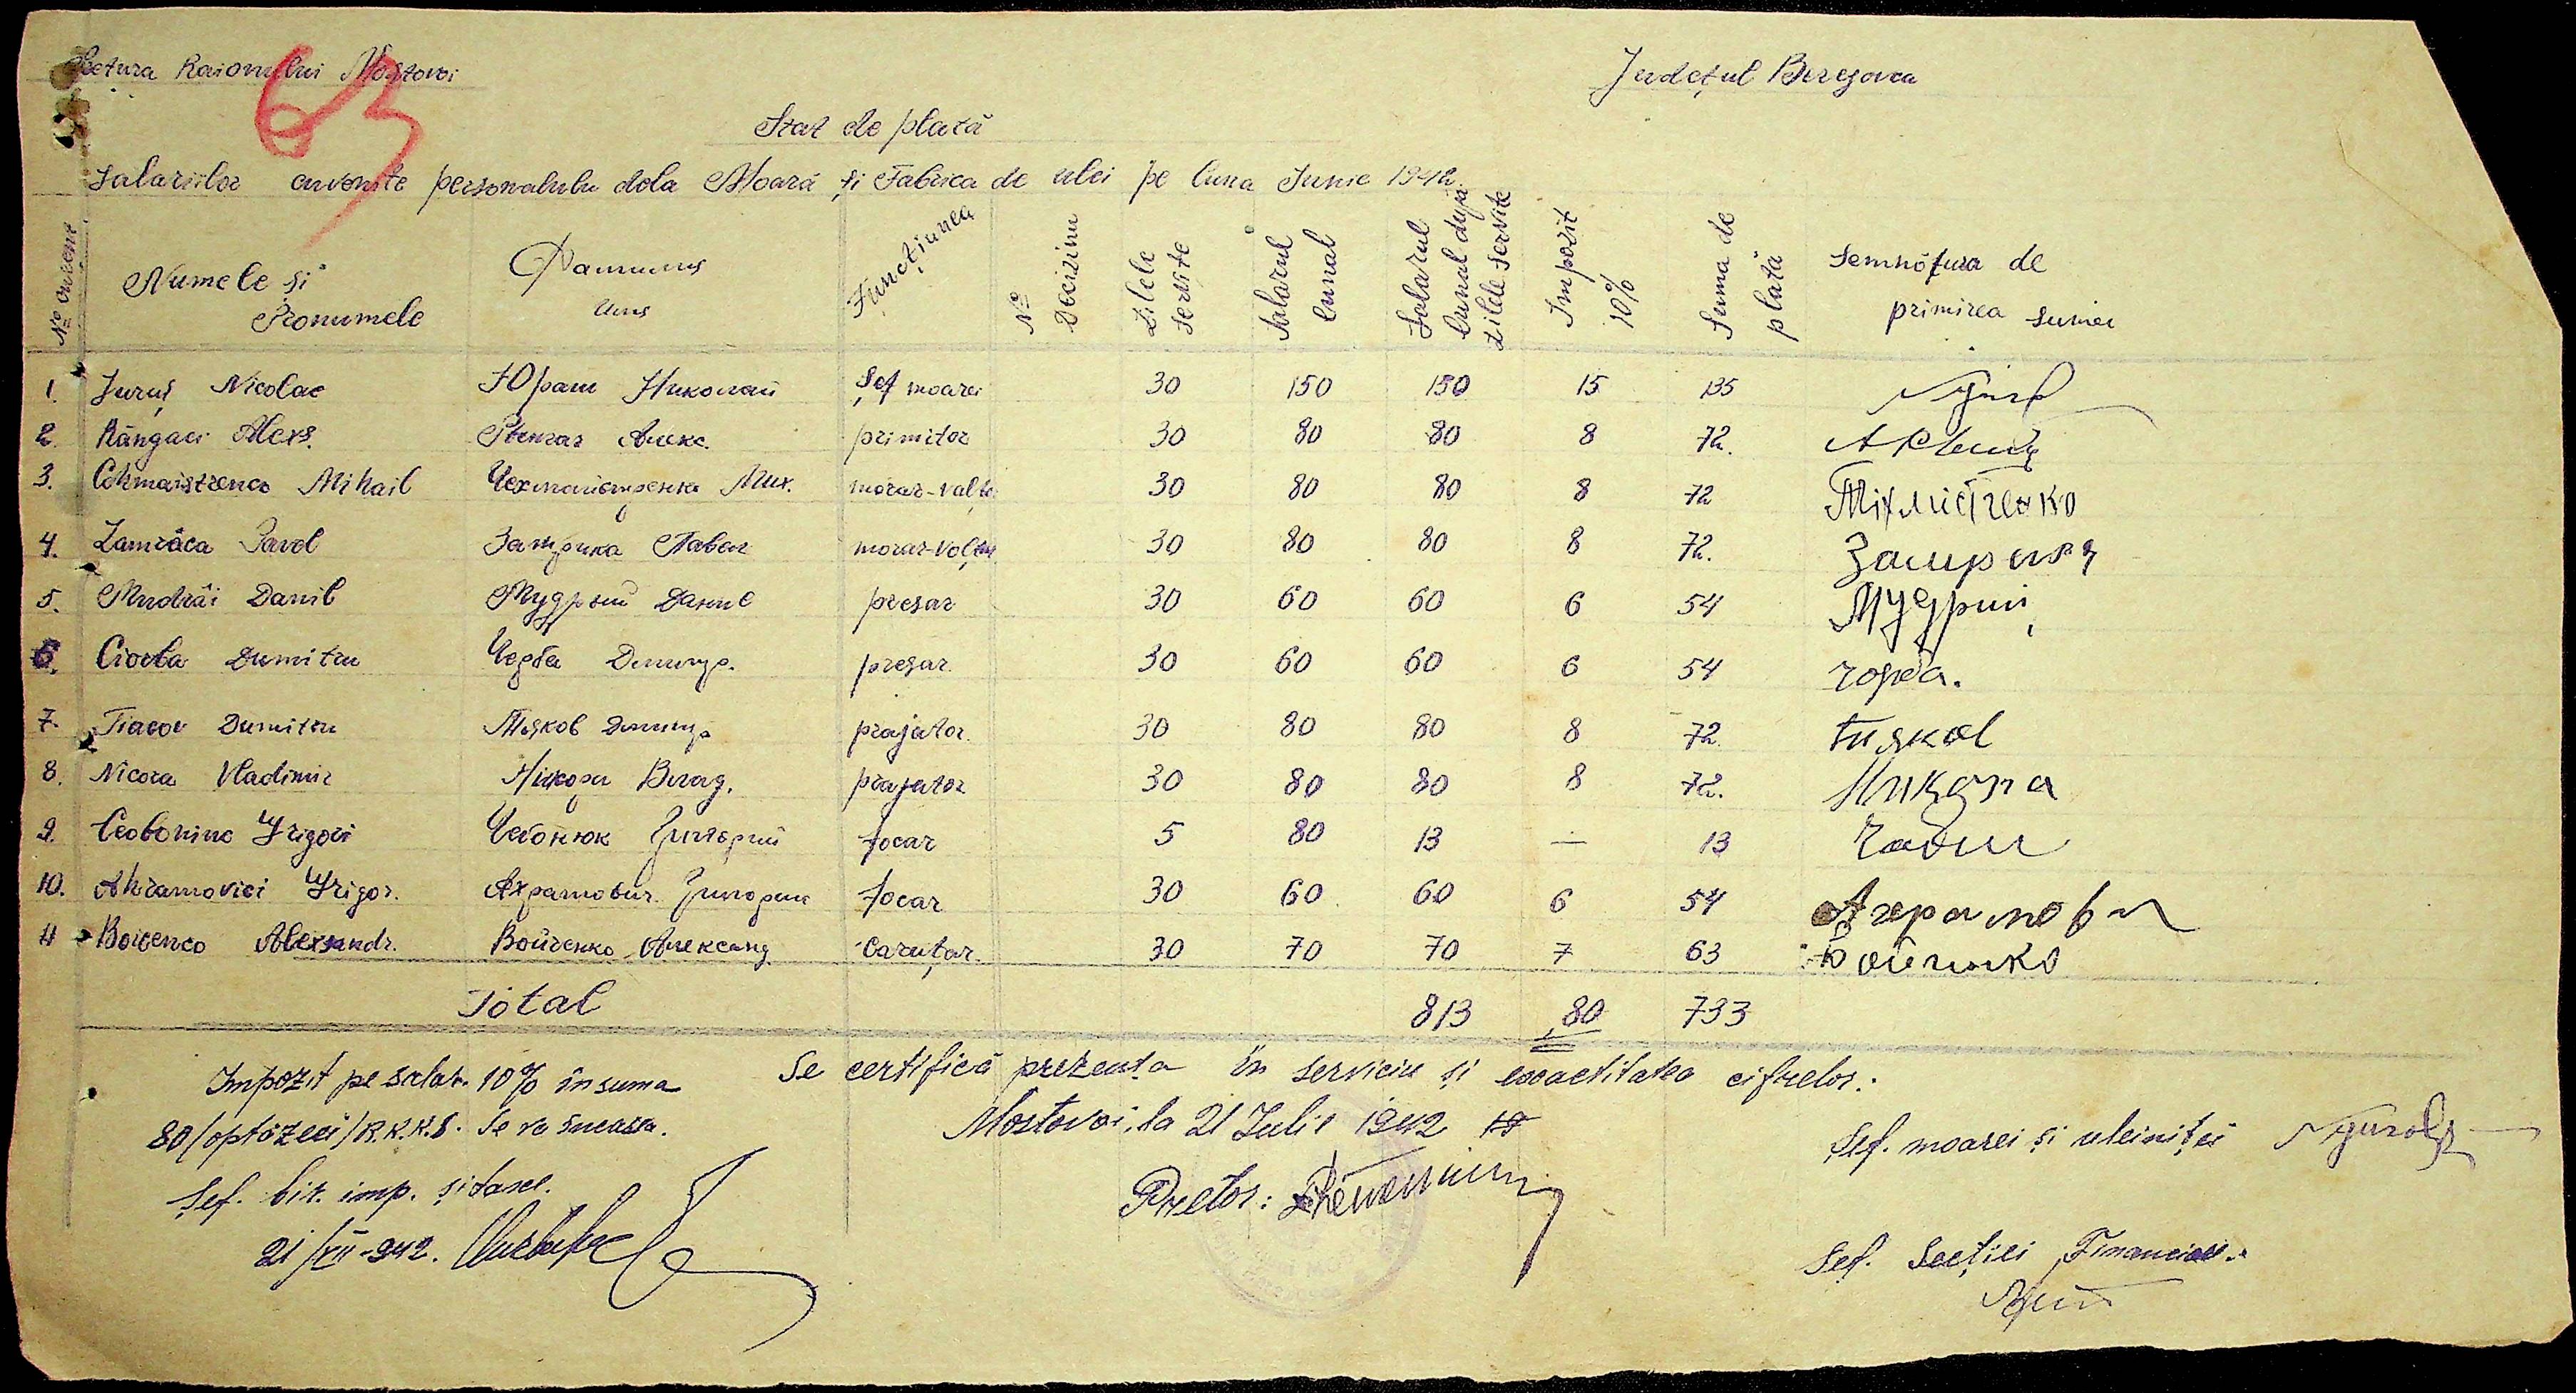 Pretura Raionului Mostovoi
Județul Berezovca
63
Stat de plată
Salariilor cuvenite personalului dela Moară și Fabrica de ulei pe luna Iunie 1942
№ curent
Numele și Pronumele
Функțiunea
№ Decizinu
Zilele servite
Salarul lunal
Salarul lunal după zilele servite
Impozit 10%
Suma de plată
Semnătura de primirea sumei
1. Juraș Nicolae Юраш Николай Șef moarei 30 150 150 15 135
2. Rângaci Alexs. Рынгач Алекс. primitor 30 80 80 8 72.
3. Cehmaistrenco Mihail Чехмайстренко Мих. morar-valțar 30 80 80 8 72
4. Zamrâca Pavel Замрика Павел morar-valțar 30 80 80 8 72. Замрика
5. Mudrâi Danil Мудрый Данил presar 30 60 60 6 54 Мудрий
6. Ciorba Dumitru Чорба Димитр. presar. 30 60 60 6 54 Чорба.
7. Tiacov Dumitru Тяков Димитр prajator. 30 80 80 8 72. Тияков
8. Nicora Vladimir Никора Влад. prajator 30 80 80 8 72. Никора
9. Ceboniuc Grigori Чебонюк Григорий focar 5 80 13 — 13
10. Ahramovici Grigor. Ахрамович Григорий focar 30 60 60 6 54 Ахрамович
11 Boicenco Alexsandr. Бойченко Александ. caruțar. 30 70 70 7 63 Бойченко
Total 813 80 733
Impozit pe salar. 10% în suma
80/optăzeci/R.K.K.S. Se va încasa.
Șef. bir. imp. și taxe.
21/VII-942.
Se certifică prezența în serviciu și exactitatea cifrelor.
Mostovoi, la 21 Iulie 1942
Pretor:
Șef. moarei și uleiniței
Șef. Secției Financiare.